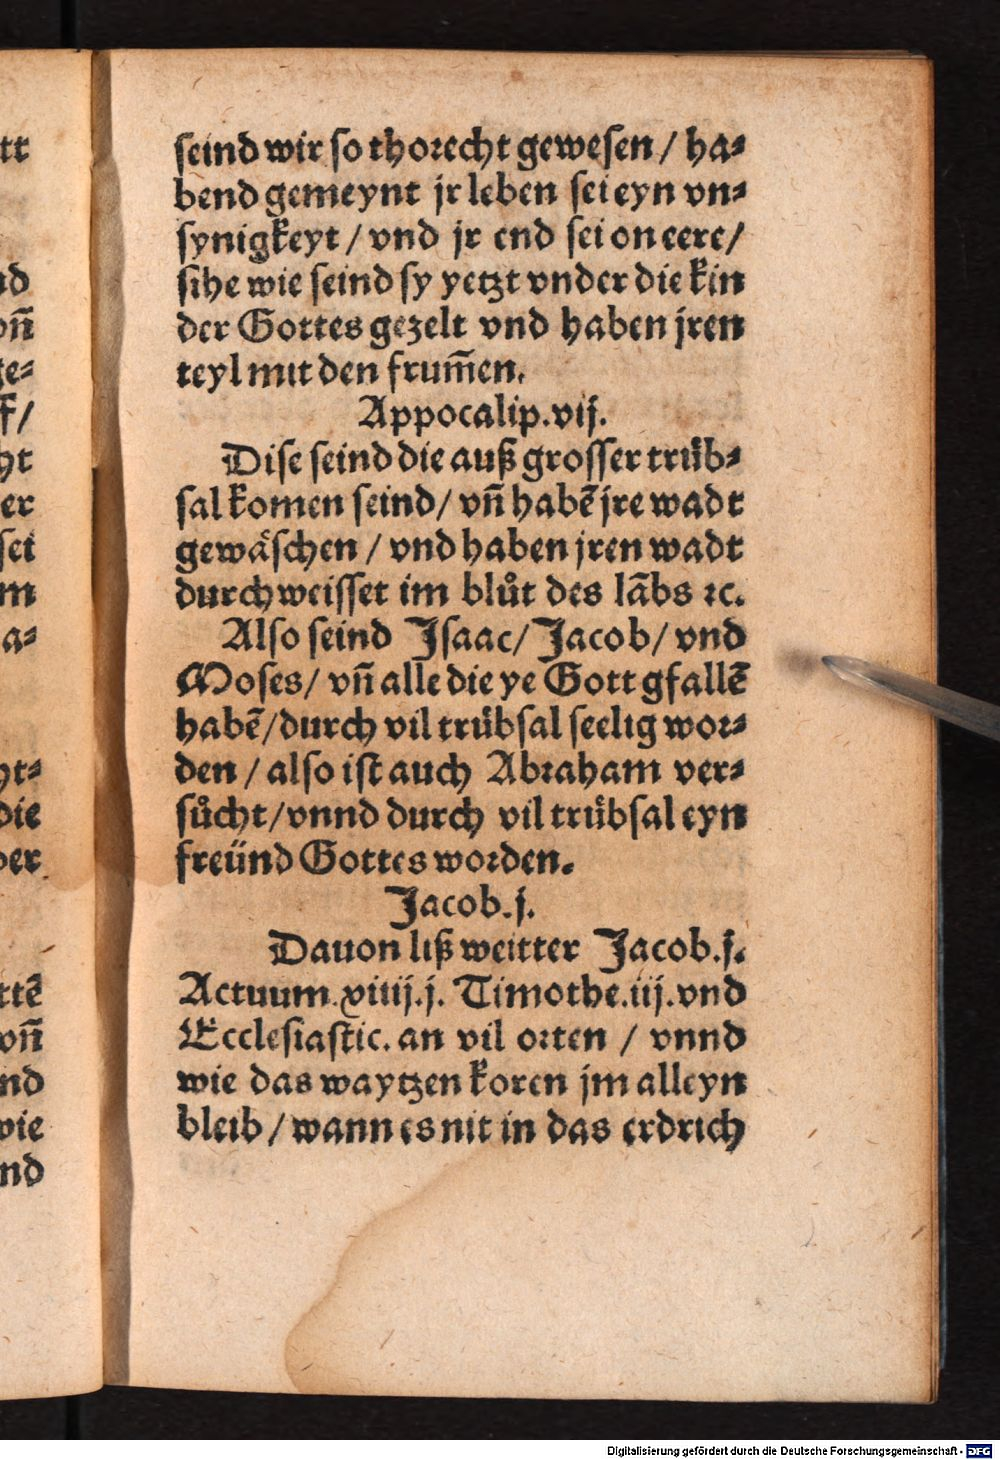 seind wir so thorecht gewesen / ha⸗
bend gemeynt jr leben sei eyn vn⸗
synigkeyt / vnd jr end sei on eere/
sihe wie seind sy yetzt vnder die kin
der Gottes gezelt vnd haben jren
teyl mit den frum̄en.
Appocalip.vij.
Dise seind die auß grosser truͤb⸗
sal komen seind/ vn̄ habē jre wadt
gewaͤschen / vnd haben jren wadt
durchweisset im bluͦt des lābs ⁊c.
Also seind Isaac/ Jacob/ vnd
Moses/ vn̄ alle die ye Gott gfallē
habē/durch vil truͤbsal seelig wor⸗
den / also ist auch Abraham ver⸗
suͦcht/vnnd durch vil truͤbsal eyn
freünd Gottes worden.
Jacob.j.
Dauon liß weitter Jacob.j.
Actuum.xiiij.j. Timothe.iij.vnd
Ecclesiastic. an vil orten / vnnd
wie das waytzen koren jm alleyn
bleib / wann es nit in das erdrich
tt
nd
vn̄
ge⸗
f/
ht
er
sei
m
a⸗
ht⸗
die
der
ttē
vn̄
nd
wie
nd
Digitalisierung gefördert durch die Deutsche Forschungsgemeinschaft - DFG